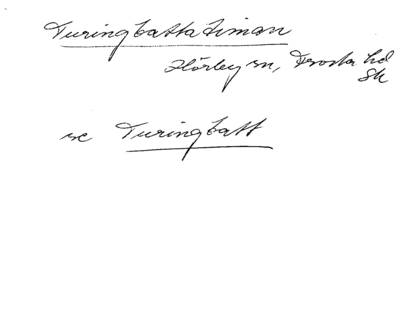 Turingbattatiman
Hörby sn, Frosta hd
Sk
se Turingbatt